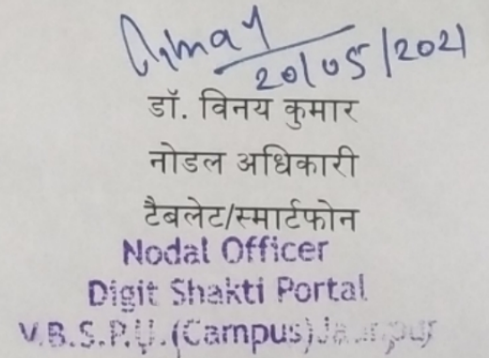 20/05/2021
डॉ. विनय कुमार
नोडल अधिकारी
टैबलेट/स्मार्टफोन
Nodal Officer
Digit Shakti Portal
V.B.S.P.U.(Campus)Jaunpur